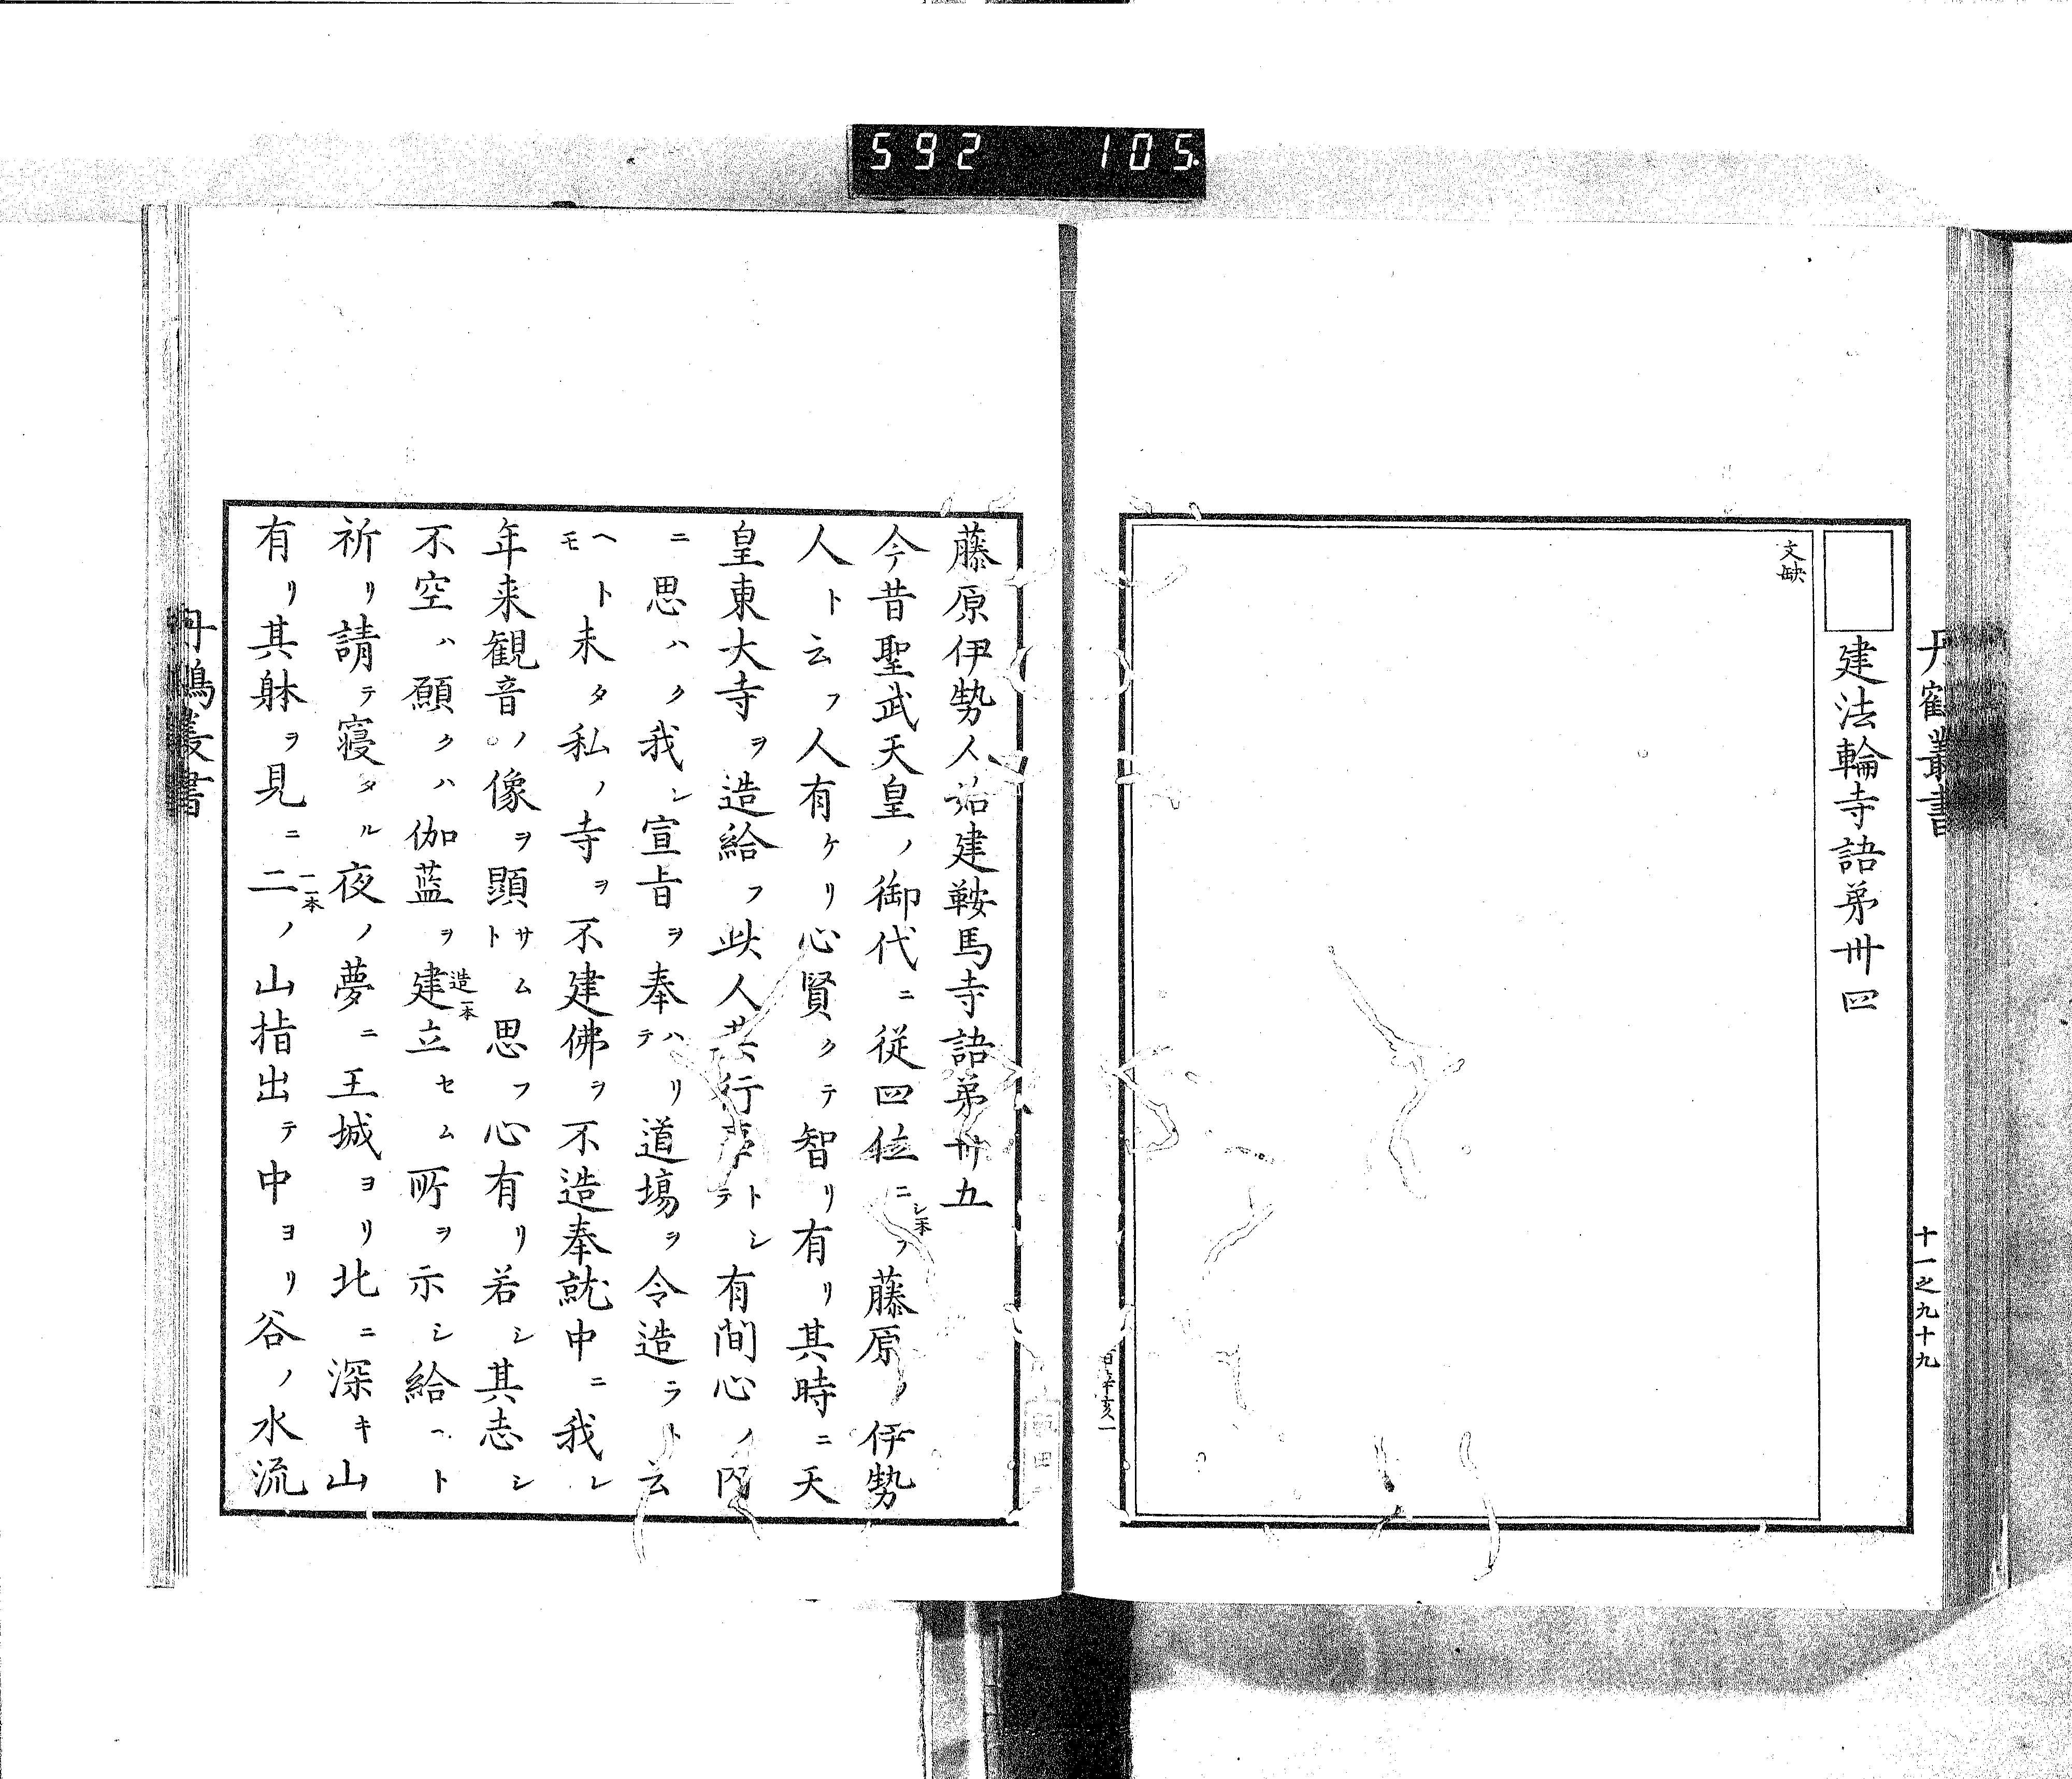 592 105
丹鶴叢書
十一之九十九
建法輪寺語第卅四
文缺
辛亥一
藤原伊勢人始建鞍馬寺語第卅五
今昔聖武天皇ノ御代ニ従四位ニシ本ノ藤原ノ伊勢
人ト云フ人有ケリ心賢クテ智リ有リ其時ニ天
皇東大寺ヲ造給フ此人其行事トシテ有間心ノ内
ニ思ハク我レ宣旨ヲ奉ハリテ道場ヲ令造ラト云
ヘトモ未タ私ノ寺ヲ不建佛ヲ不造奉就中ニ我レ
年来観音ノ像ヲ顕サムト思フ心有リ若シ其志シ
不空ハ願クハ伽藍ヲ建造一本立セム所ヲ示シ給ヘト
祈リ請テ寝タル夜ノ夢ニ王城ヨリ北ニ深キ山
有リ其躰ヲ見ニ二一一本ノ山指出テ中ヨリ谷ノ水流
丹鶴叢書